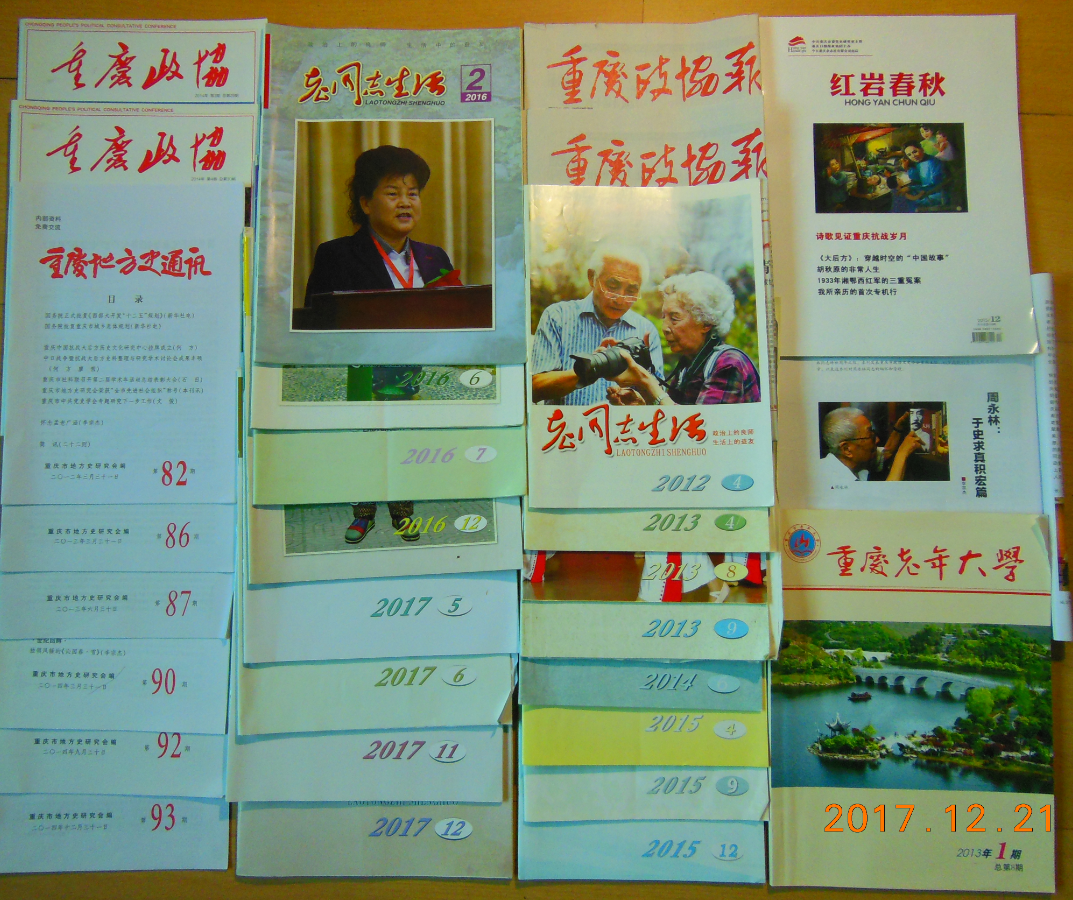 CHONGQING PEOPLE'S POLITICAL CONSULTATIVE CONFERENCE
重慶政協
CHONGQING PEOPLE'S POLITICAL CONSULTATIVE CONFERENCE
重慶政協
内部资料
免费交流
重慶地方史通讯
目 录
重庆市地方史研究会编
二〇一二年三月三十一日
第82期
重庆市地方史研究会编
二〇一三年三月三十一日
第86期
重庆市地方史研究会编
二〇一三年六月三十日
第87期
重庆市地方史研究会编
二〇一四年三月三十一日
第90期
重庆市地方史研究会编
二〇一四年九月三十日
第92期
重庆市地方史研究会编
二〇一四年十二月三十一日
第93期
老同志生活
LAOTONGZHI SHENGHUO
2
2016
2016 6
2016 7
2016 12
2017 5
2017 6
2017 11
2017 12
重慶政協報
重慶政協報
老同志生活
LAOTONGZHI SHENGHUO
政治上的良师
生活上的益友
2012 4
2013 4
2013 8
2013 9
2014
2015 4
2015 9
2015 12
红岩春秋
HONG YAN CHUN QIU
诗歌见证重庆抗战岁月
《大后方》：穿越时空的“中国故事”
胡秋原的非常人生
1933年湘鄂西红军的三重冤案
我所亲历的首次专机行
12
周永林：
于史求真积宏篇
重慶老年大學
2013年1期
总第8期
2017.12.21